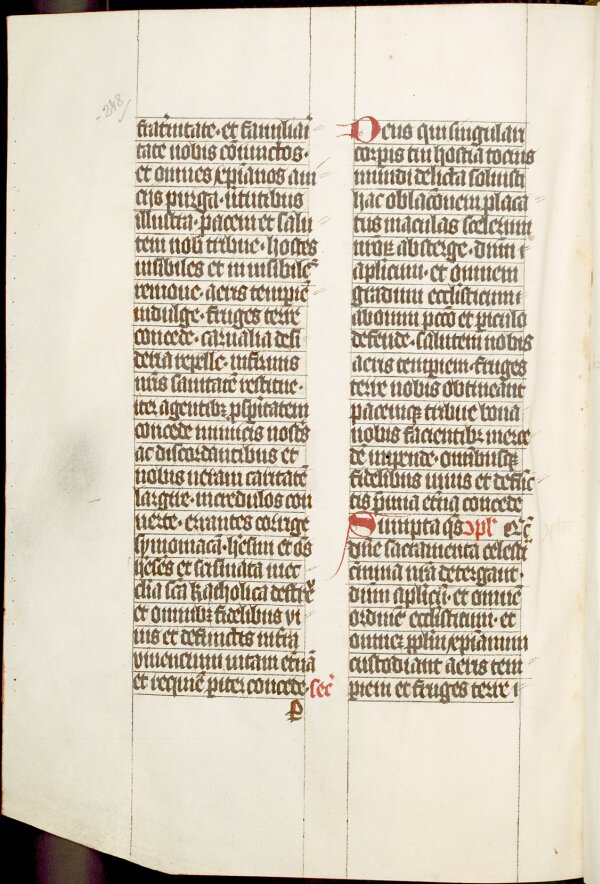 248
fratnitate · et familiai
tate nobis coniunctos ·
et omnes xpianos a uii
cijs purga · uirtutibus
illustra · pacem et salu
tem nob tribue · hostes
uisibiles et inuisibiles
remoue · aeris tempiē
indulge · fruges terre
concede · carnalia desi
deria repelle · infirmis
nris sanitatē restitue ·
iter agentibz pspitatem
concede inimicis nostris
ac discordantibus et
nobis ueram caritatē
largire · incredulos con
uerte · errantes corrige
symoniacā · hesim et os
heses et scismata inec
clia scā katholica destrue
et omnibz fidelibus vi
uis et defunctis in tra
viuencium uitam etnā
et requiē piter concede · sec
p
Deus qui singulari
corpis tui hostia tocius
mundi delicta soluisti
hac oblacōnem placa
tus maculas scelerum
nrōr absterge · dnm i
aplicum · et omnem
gradum ecclisticum i
ab omni pccō et piculo
defende · salutem nobis
aeris tempiem · fruges
terre nobis obtineant
pacemqz tribue bona
nobis facientibz merce
de inpende · omībusqz
fidelibus uiuis et defūc
tis pmia etna concede
Sumpta qs opl
dne sacramenta celesti
crimina nra detergant ·
dnm aplicū · et omnē
ordinē ecclisticum · et
omnez pplm xpianum
custodiant aeris tem
piem et fruges terre i